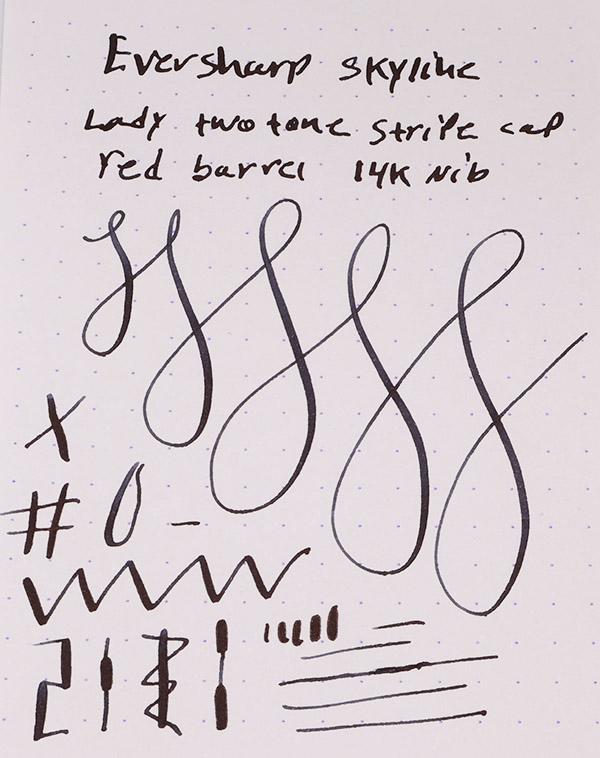 Eversharp skyline
Lady two tone stripe cap
red barrel 14K Nib
X
# 0 -